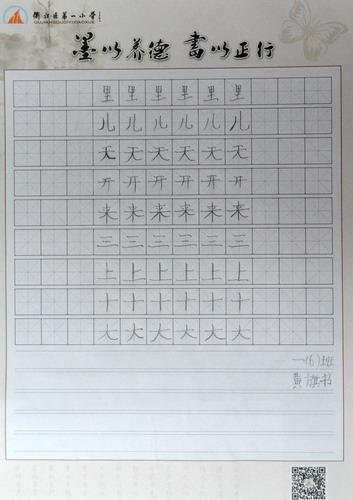 衢江区第一小学
QUJIANGQUDIYIXIAOXUE
墨以养德 書以正行
里里里里里里
儿儿儿儿儿儿
天天天天天天
开开开开开开
来来来来来来
三三三三三三
上上上上上上
十十十十十十
大大大大大大
一(6)班
黄旗书